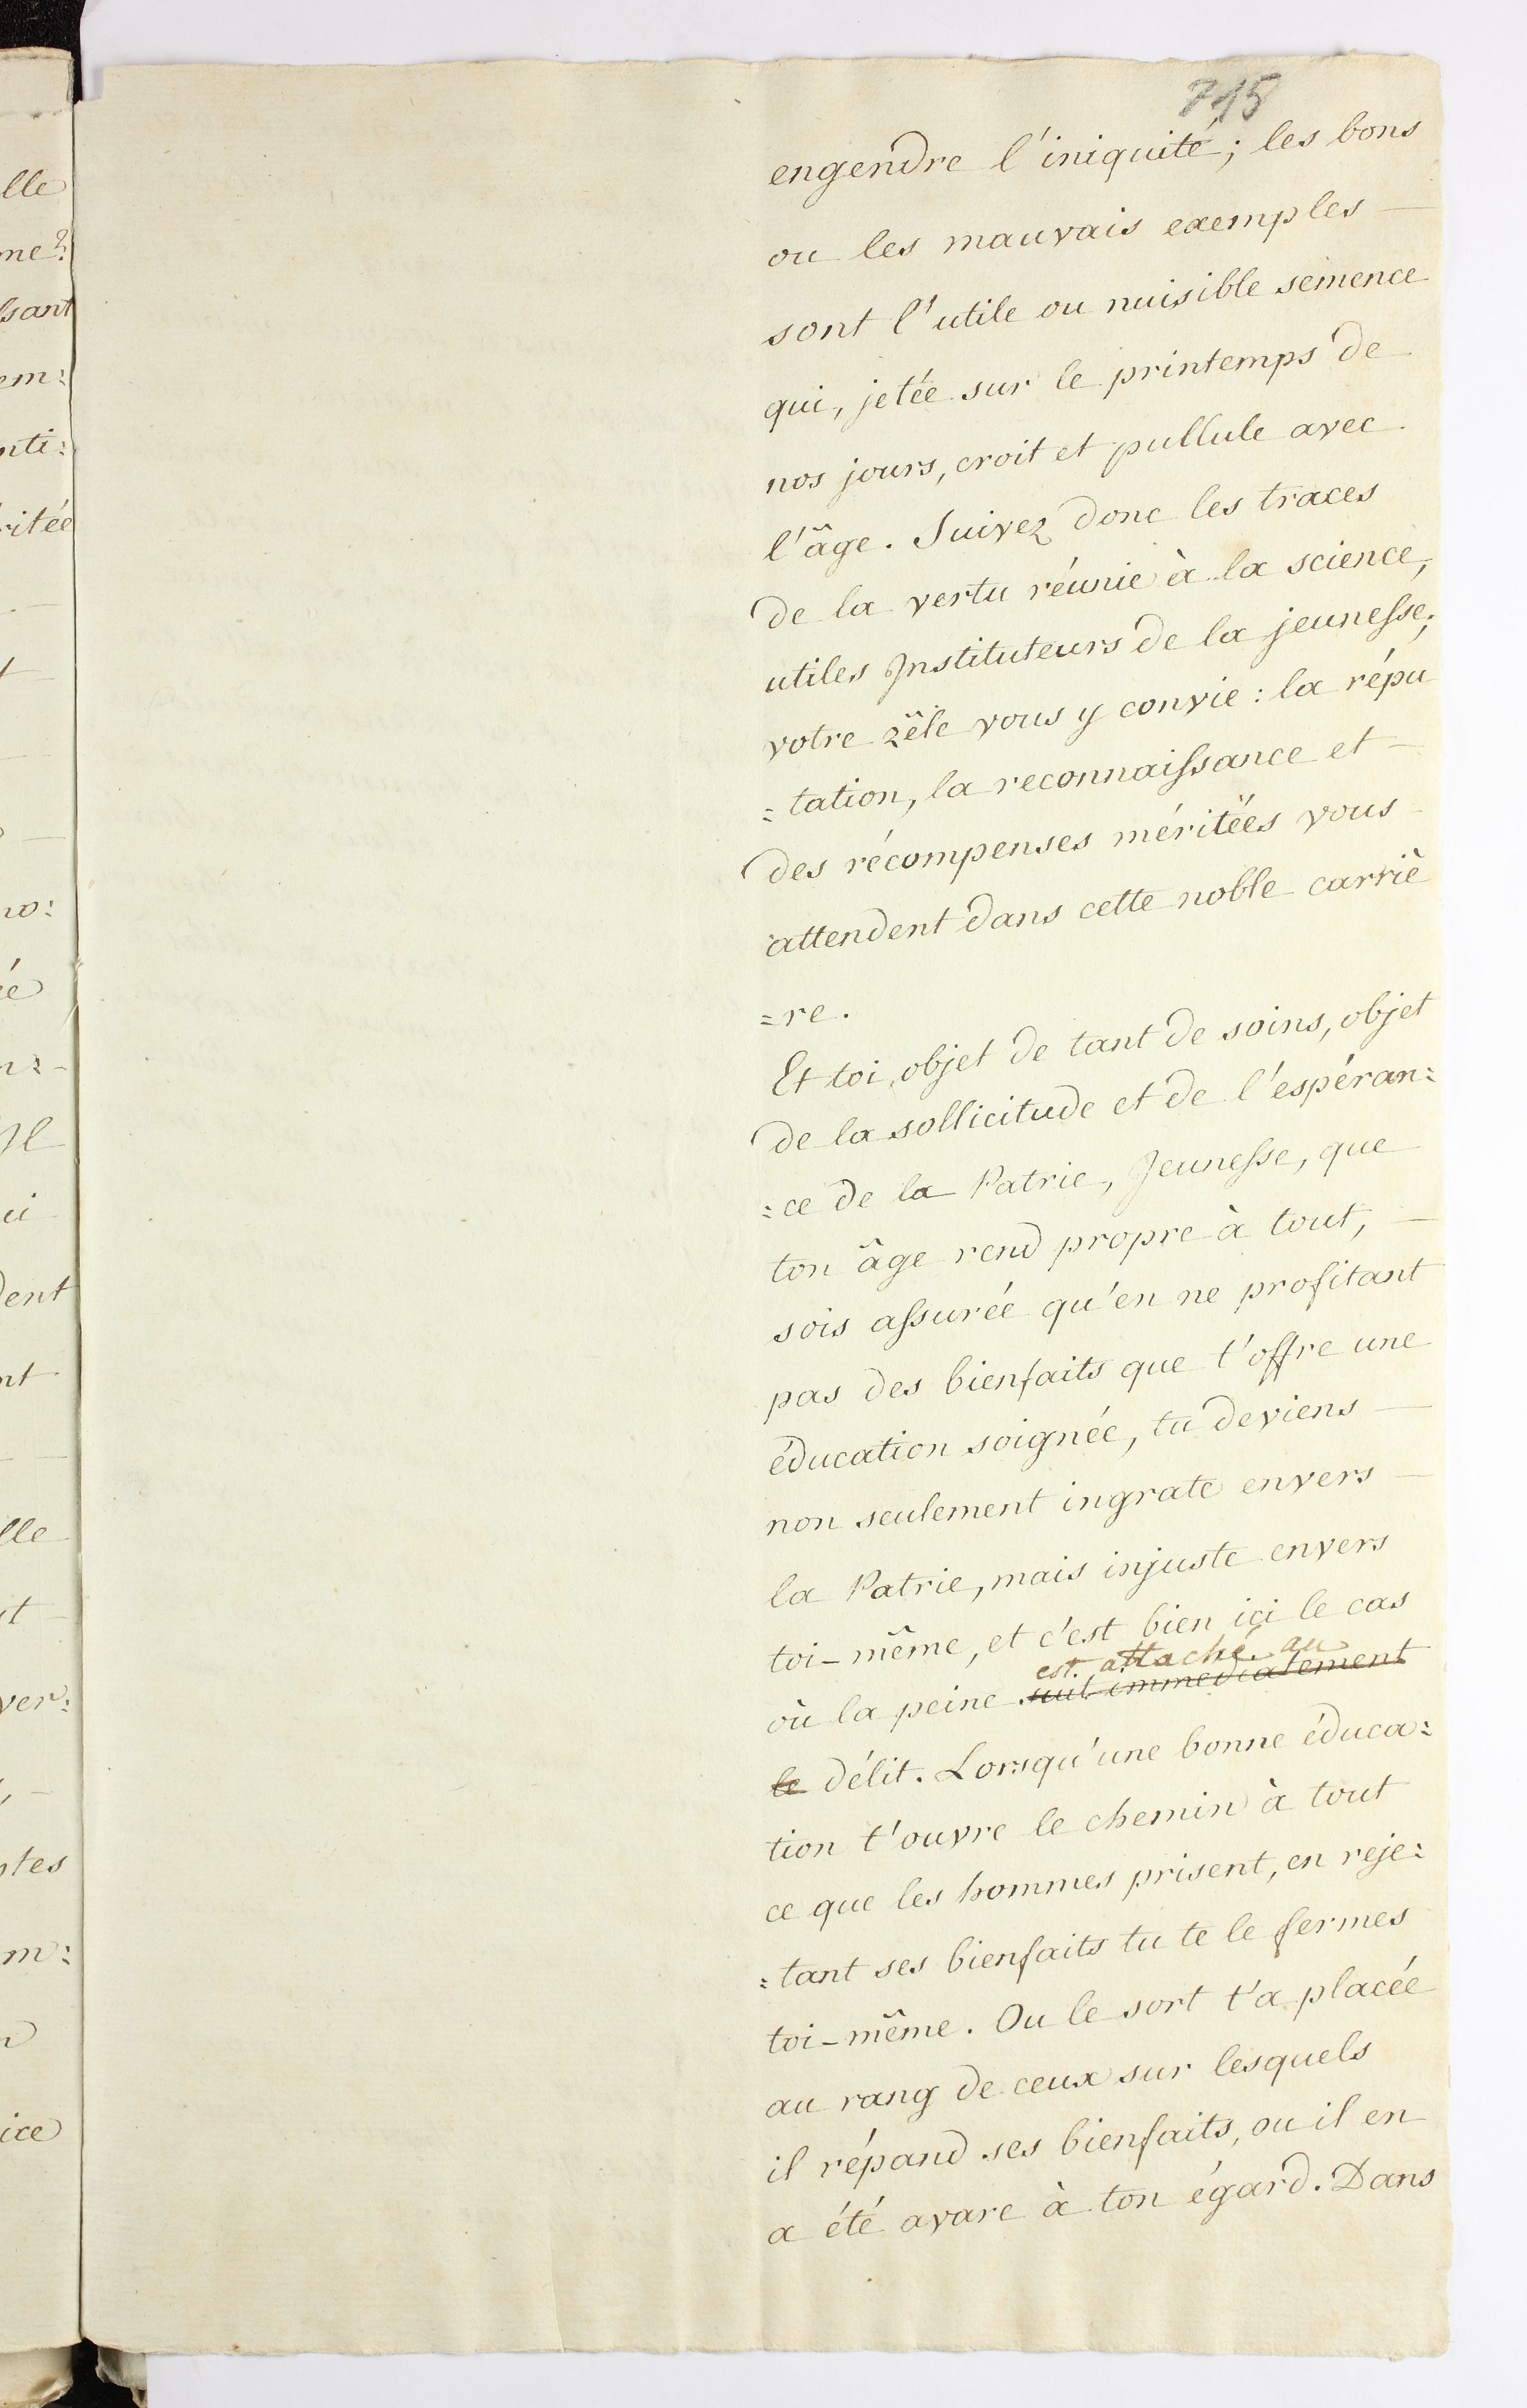 715
engendre l'iniquité; les bons
ou les mauvais exemples —
sont l'utile ou nuisible semence
qui, jetée sur le printemps de
nos jours, croit et pullule avec
l'âge. Suivez donc les traces
de la vertu réunie à la science,
utiles Instituteurs de la jeunesse;
votre zêle vous y convie: la répu
=tation, la reconnaissance et —
des récompenses méritées vous
attendent dans cette noble carriè
=re.
Et toi, objet de tant de soins, objet
de la sollicitude et de l'espéran=
=ce de la Patrie, Jeunesse, que
ton âge rend propre à tout, —
sois assurée qu'en ne profitant
pas des bienfaits que t'offre une
éducation soignée, tu deviens —
non seulement ingrate envers —
la Patrie, mais injuste envers
toi-même, et c'est bien içi le cas
est attaché au
où la peine suit immediatement
le délit. Lorsqu'une bonne éduca=
tion t'ouvre le chemin à tout
ce que les hommes prisent, en reje=
=tant ses bienfaits tu te le fermes
toi-même. Ou le sort t'a placée
au rang de ceux sur lesquels
il répand ses bienfaits, ou il en
a été avare à ton égard. Dans